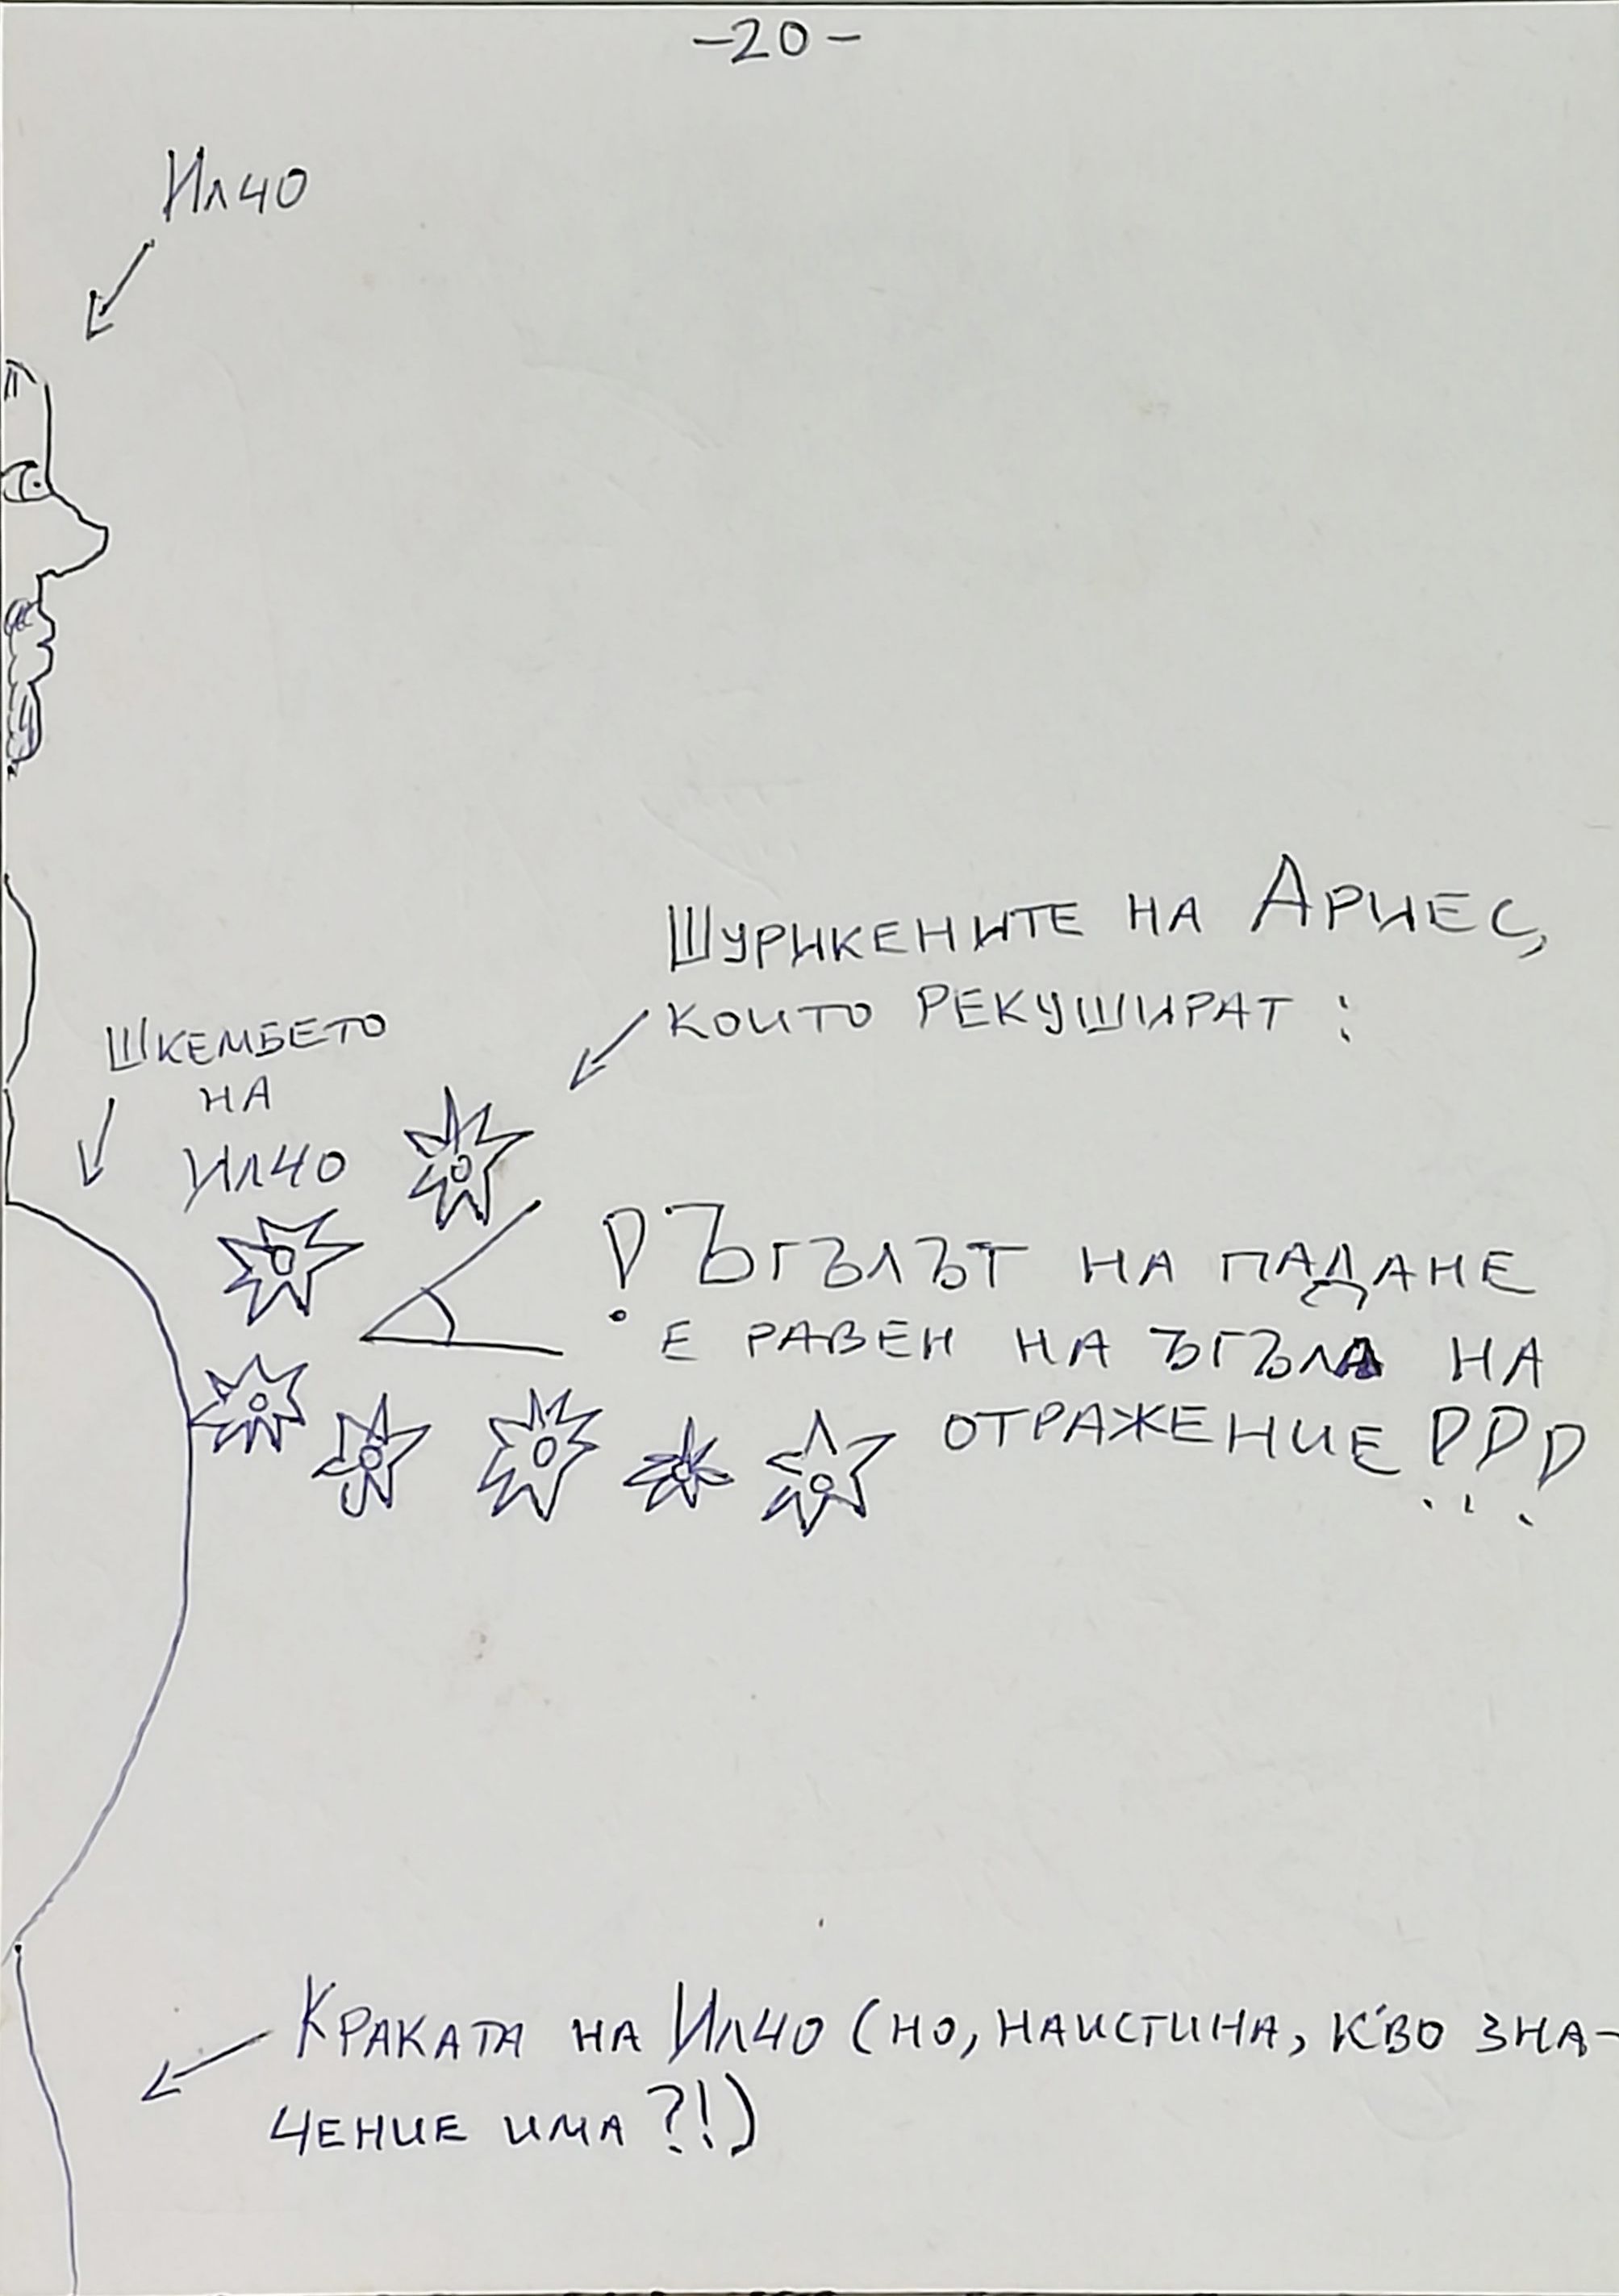 -20-
Илчо
Шурикените на Ариес,
които рекушират:
Шкембето
на
Илчо
! Ъгълът на падане
е равен на ъгъла на
отражение!!!
Краката на Илчо (но, наистина, к'во зна-
чение има?!)